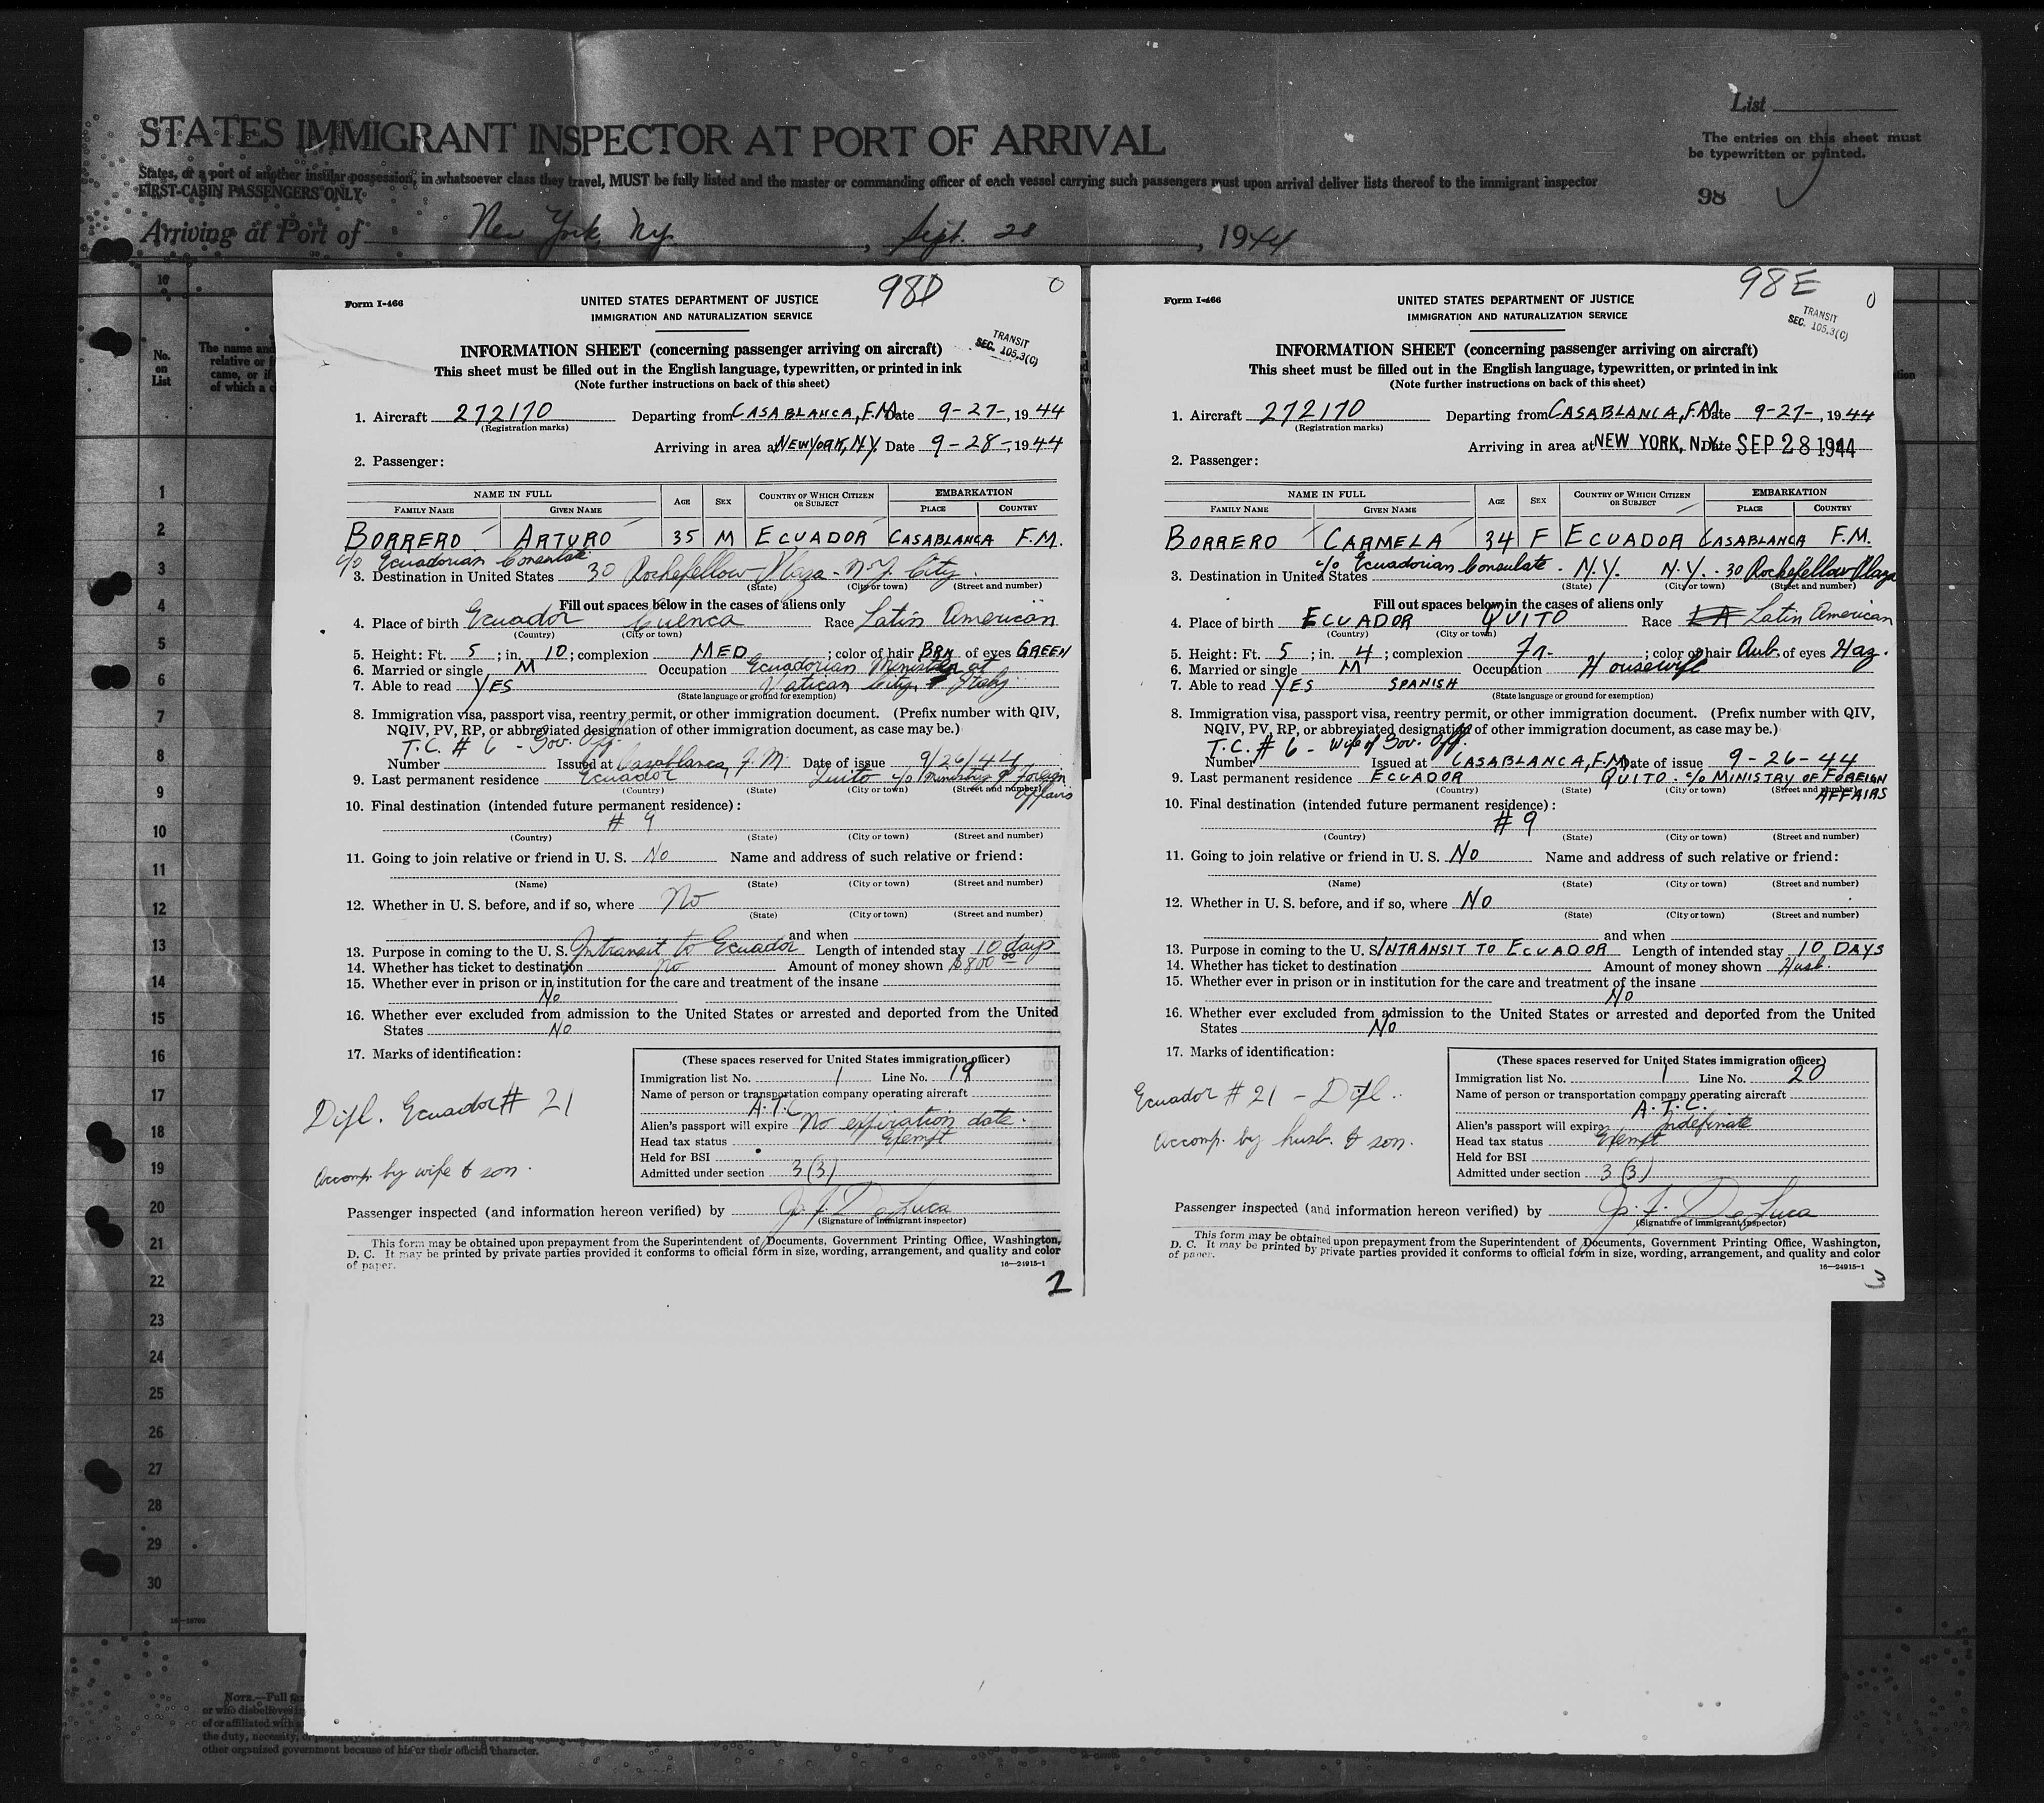 List
STATES IMMIGRANT INSPECTOR AT PORT OF ARRIVAL
The entries on this sheet must
be typewritten or printed.
States, or a port of another insular possession, in whatsoever class they travel, MUST be fully listed and the master or commanding officer of each vessel carrying such passengers must upon arrival deliver lists thereof to the immigrant inspector
FIRST-CABIN PASSENGERS ONLY
98
Arriving at Port of New York, Ny. , Sept. 28 , 1944
No.
on
List
The name and
relative or
came, or if
of which a
1
2
3
4
5
6
7
8
9
10
11
12
13
14
15
16
17
18
19
20
21
22
23
24
25
26
27
28
29
30
98D
0
Form I-466
UNITED STATES DEPARTMENT OF JUSTICE
IMMIGRATION AND NATURALIZATION SERVICE
TRANSIT
SEC. 105.3(C)
INFORMATION SHEET (concerning passenger arriving on aircraft)
This sheet must be filled out in the English language, typewritten, or printed in ink
(Note further instructions on back of this sheet)
1. Aircraft 272170 Departing from CASABLANCA, F.M. Date 9-27-, 1944
(Registration marks)
Arriving in area at NEW YORK, N.Y. Date 9-28-, 1944
2. Passenger:
NAME IN FULL AGE SEX COUNTRY OF WHICH CITIZEN OR SUBJECT EMBARKATION
FAMILY NAME GIVEN NAME PLACE COUNTRY
BORRERO ARTURO 35 M ECUADOR CASABLANCA F.M.
c/o Ecuadorian Consulate
3. Destination in United States 30 Rockefellow Plaza - N.Y. City
(State) (City or town) (Street and number)
Fill out spaces below in the cases of aliens only
4. Place of birth Ecuador Cuenca Race Latin American
(Country) (City or town)
5. Height: Ft. 5; in. 10; complexion MED; color of hair BRN of eyes GREEN
6. Married or single M Occupation Ecuadorian Minister at
7. Able to read YES Vatican City, Italy
(State language or ground for exemption)
8. Immigration visa, passport visa, reentry permit, or other immigration document. (Prefix number with QIV,
NQIV, PV, RP, or abbreviated designation of other immigration document, as case may be.)
T.C. # 6 - Gov. Off.
Number Issued at Casablanca, F.M. Date of issue 9/26/44
9. Last permanent residence Ecuador Quito c/o Ministry of Foreign
Affairs
(Country) (State) (City or town) (Street and number)
10. Final destination (intended future permanent residence):
# 9
(Country) (State) (City or town) (Street and number)
11. Going to join relative or friend in U. S. No Name and address of such relative or friend:
(Name) (State) (City or town) (Street and number)
12. Whether in U. S. before, and if so, where No
(State) (City or town) (Street and number)
and when
13. Purpose in coming to the U. S. Intransit to Ecuador Length of intended stay 10 days
14. Whether has ticket to destination No Amount of money shown $800 00
15. Whether ever in prison or in institution for the care and treatment of the insane
No
16. Whether ever excluded from admission to the United States or arrested and deported from the United
States No
17. Marks of identification:
Dipl. Ecuador # 21
Accomp. by wife & son.
(These spaces reserved for United States immigration officer)
Immigration list No. 1 Line No. 19
Name of person or transportation company operating aircraft
A.T.C.
Alien's passport will expire No expiration date.
Head tax status Exempt
Held for BSI
Admitted under section 3(3)
Passenger inspected (and information hereon verified) by J. F. DeLuca
(Signature of immigrant inspector)
This form may be obtained upon prepayment from the Superintendent of Documents, Government Printing Office, Washington,
D. C. It may be printed by private parties provided it conforms to official form in size, wording, arrangement, and quality and color
of paper.
16—24915-1
2
98E
0
Form I-466
UNITED STATES DEPARTMENT OF JUSTICE
IMMIGRATION AND NATURALIZATION SERVICE
TRANSIT
SEC. 105.3(C)
INFORMATION SHEET (concerning passenger arriving on aircraft)
This sheet must be filled out in the English language, typewritten, or printed in ink
(Note further instructions on back of this sheet)
1. Aircraft 272170 Departing from CASABLANCA, F.M. Date 9-27-, 1944
(Registration marks)
Arriving in area at NEW YORK, N.Y. Date SEP 28 1944
2. Passenger:
NAME IN FULL AGE SEX COUNTRY OF WHICH CITIZEN OR SUBJECT EMBARKATION
FAMILY NAME GIVEN NAME PLACE COUNTRY
BORRERO CARMELA 34 F ECUADOR CASABLANCA F.M.
3. Destination in United States c/o Ecuadorian Consulate. N.Y. N.Y. 30 Rockefellow Plaza
(State) (City or town) (Street and number)
Fill out spaces below in the cases of aliens only
4. Place of birth ECUADOR QUITO Race LA Latin American
(Country) (City or town)
5. Height: Ft. 5; in. 4; complexion Fr.; color of hair Aub. of eyes Haz.
6. Married or single M Occupation Housewife
7. Able to read YES SPANISH
(State language or ground for exemption)
8. Immigration visa, passport visa, reentry permit, or other immigration document. (Prefix number with QIV,
NQIV, PV, RP, or abbreviated designation of other immigration document, as case may be.)
T.C. # 6 - Wife of Gov. Off.
Number Issued at CASABLANCA, F.M. Date of issue 9-26-44
9. Last permanent residence ECUADOR QUITO. c/o MINISTRY OF FOREIGN
AFFAIRS
(Country) (State) (City or town) (Street and number)
10. Final destination (intended future permanent residence):
# 9
(Country) (State) (City or town) (Street and number)
11. Going to join relative or friend in U. S. No Name and address of such relative or friend:
(Name) (State) (City or town) (Street and number)
12. Whether in U. S. before, and if so, where No
(State) (City or town) (Street and number)
and when
13. Purpose in coming to the U. S. INTRANSIT TO ECUADOR Length of intended stay 10 DAYS
14. Whether has ticket to destination Amount of money shown Husb.
15. Whether ever in prison or in institution for the care and treatment of the insane
No
16. Whether ever excluded from admission to the United States or arrested and deported from the United
States No
17. Marks of identification:
Ecuador # 21 - Dipl.
Accomp. by husb. & son.
(These spaces reserved for United States immigration officer)
Immigration list No. 1 Line No. 20
Name of person or transportation company operating aircraft
A.T.C.
Alien's passport will expire Indefinate
Head tax status Exempt
Held for BSI
Admitted under section 3(3)
Passenger inspected (and information hereon verified) by J. F. DeLuca
(Signature of immigrant inspector)
This form may be obtained upon prepayment from the Superintendent of Documents, Government Printing Office, Washington,
D. C. It may be printed by private parties provided it conforms to official form in size, wording, arrangement, and quality and color
of paper.
16—24915-1
3
NOTE.—Full
or who disbelieves in
of or affiliated with
the duty, necessity, or
other organized government because of his or their official character.